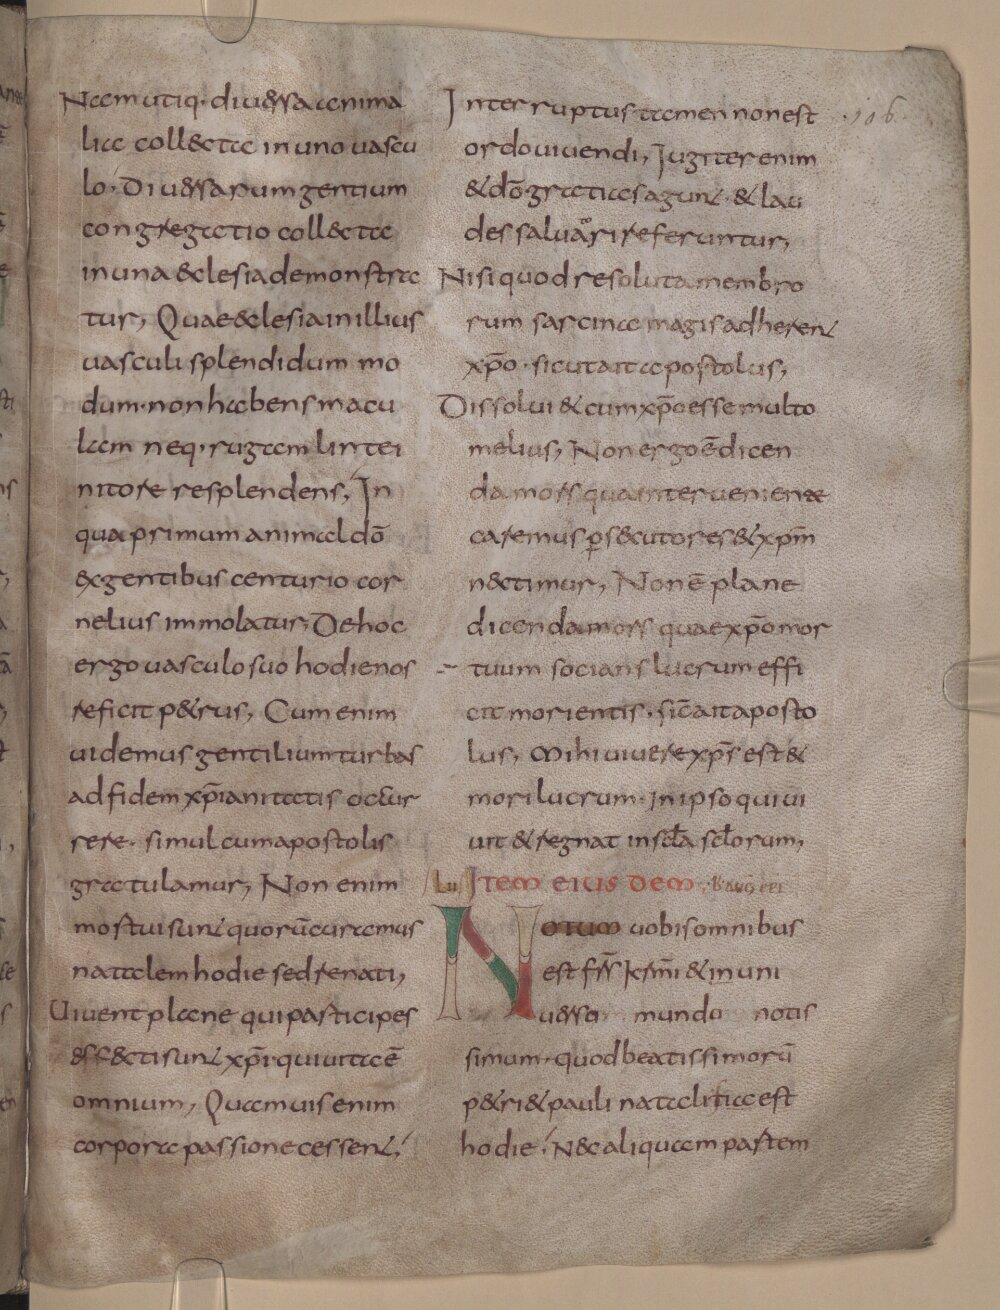 Nam utiq· diuersa anima
lia collecta in uno uascu
lo· Diuersarum gentium
congregatio collecta
in una &clesia demonstra
tur, Quae &clesia in illius
uasculi splendidum mo
dum· non habens macu
lam neq· rugam lintei
nitore resplendens, In
qua primum animal dō
& gentibus centurio cor
nelius immolatur, De hoc
ergo uasculo suo hodie nos
reficit p&rus, Cum enim
uidemus gentilium turbas
ad fidem xp̄ianitatis occur
rere· simul cum apostolis
gratulamur, Non enim
mortui sunt quorū curamus
natalem hodie sed renati,
Uiuent plane qui participes
effecti sunt xp̄i qui uita ē
omnium, Quamuis enim
corpore passione cessent,
Interruptus tamen non est
ordo uiuendi, Iugiter enim
& dō gratias agunt· & lau
des saluatori referuntur,
Nisi quod resoluta membro
rum sarcina magis adherent
xp̄o· sicut ait apostolus,
Dissolui & cum xp̄o esse multo
melius, Non ergo ē dicen
da mors qua interueniente
caremus p̱secutores & xp̄m
nectimur, Non ē plane
dicenda mors quae xp̄o mor
tuum socians lucrum effi
cit morientis· sic̄ ait aposto
lus, Mihi uiuere xp̄s est &
mori lucrum· In ipso qui ui
uit & regnat in scl̄a scl̄orum,
ITEM EIUSDEM
NOTUM uobis omnibus
est fr̄s kr̄mi & in uni
uerso mundo notis
simum· quod beatissimorū
p&ri & pauli natalitia est
hodie· Nec aliquam partem